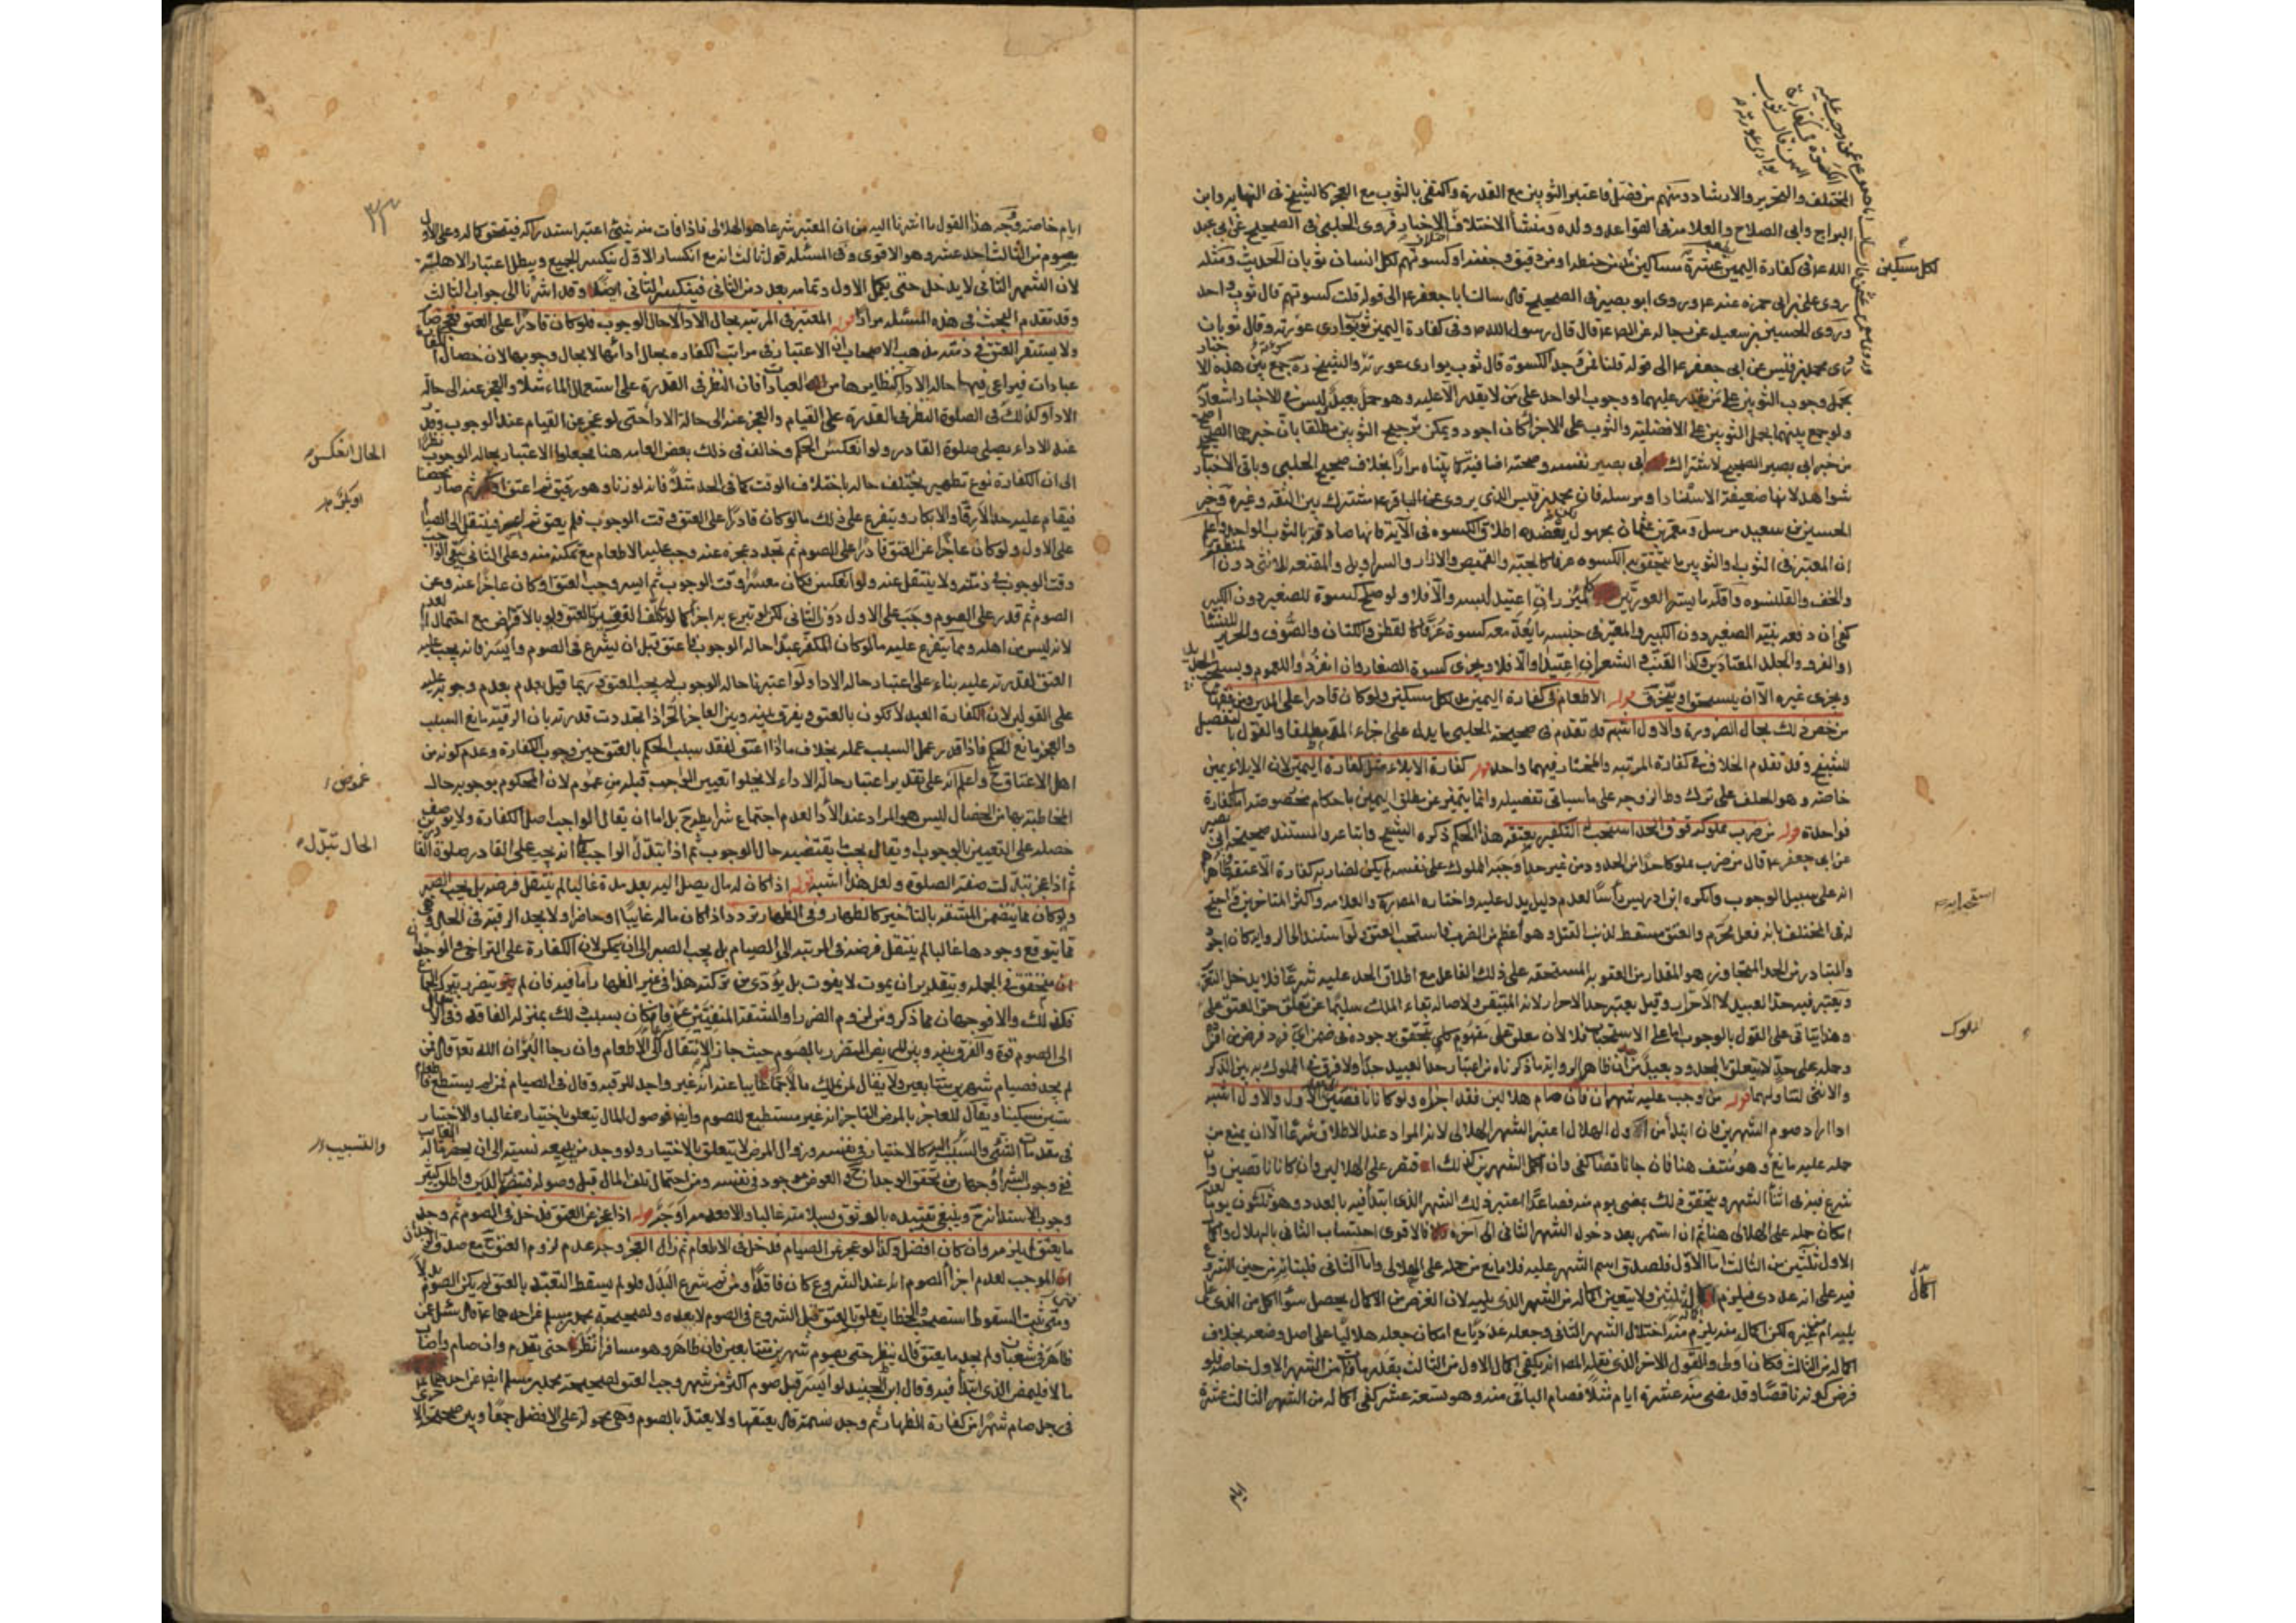 المختلف والتحرير والارشاد ومنهم من فصل فاعتبر الثوبين مع القدرة واكتفى بالثوب مع العجز كالشيخ فى النهاية وابن
البراج وابى الصلاح والعلامة فى القواعد وولده ومنشأ الاختلاف اختلاف الاخبار فروى الحلبى فى الصحيح عن ابى عبد
الله ع فى كفارة اليمين عشرة مساكين مدين حنطة او من دقيق وحفنة او كسوتهم لكل انسان ثوبان الحديث ومثله
روى على بن ابى حمزه عنه ع وروى ابو بصير فى الصحيح قال سالت ابا جعفر ع الى قوله قلت كسوتهم قال ثوب واحد
وروى الحسين بن سعيد عن رجاله عن قال قال رسول الله ص وفى كفارة اليمين ثوب يوارى عورته وقال ثوبان
روى محمد بن قيس عن ابى جعفر ع الى قوله قلنا فمن وجد الكسوة قال ثوب يوارى عورته والشيخ ره جمع بين هذه الا
بحمل وجوب الثوبين على من يقدر عليهما ووجوب الواحد على من لا يقدر الا عليه وهو حمل بعيد ليس فى الاخبار اشعار
ولو جمع بينهما بحمل الثوبين على الافضلية والثوب على الاجزاء كان اجود ويمكن ترجيح الثوبين مطلقا بان خبرهما الصحيح
من خبر ابى بصير الصحيح لاشتراك ابى بصير نفسه وصحته اضافية كما بيناه مرارا بخلاف صحيح الحلبى وباقى الاخبار
شواهد لانها ضعيفة الاسناد او مرسلة فان محمد بن قيس الذى يروى عن الباقر ع مشترك بين الثقة وغيره وخبر
الحسين بن سعيد مرسل ومعمر بن عثمان مجهول يعضده اطلاق الكسوه فى الآية فانها صادقة بالثوب الواحد واعلم
ان المعتبر فى الثوب والثوبين ما يتحقق به الكسوه عرفا كالجبة والقميص والازار والسراويل والمقنعه للانثى دون
والخف والقلنسوه واقله ما يستر العورتين كالميزر ان اعتيد لبسه والا فلا ولو صلح كسوة للصغير دون الكبير
كفى ان دفعه بنية الصغير دون الكبير والمعتبر فى جنسه ما يعد معه كسوة عرفا كالقطن والكتان والصوف والحرير
والفرو والجلد المعتادين وكذا القنب والشعر ان اعتيدا والا فلا ويجزى كسوة الصغار وان انفردوا للعموم ويستحب
ويجزى غيره الا ان ينسحق او يتخرق قوله الاطعام فى كفارة اليمين مد لكل مسكين ولو كان قادرا على المدين ومن فقهائنا
من خص ذلك بحال الضرورة والاول اشبه قد تقدم فى صحيحة الحلبى ما يدل على اجزاء المد مطلقا والقول بالتفصيل
للشيخ وقد تقدم الخلاف فى كفارة المرتبه والمختار فيهما واحد قوله كفارة الايلاء مثل كفارة اليمين لان الايلاء يمين
خاصة وهو الحلف على ترك وطى الزوجه على ما سياتى تفصيله وانما يتميز عن مطلق اليمين باحكام مخصوصة اما كفارة
فواحدة قوله من ضرب مملوكه فوق الحد استحب التكفير بعتقه هذا الحكم ذكره الشيخ واتباعه والمستند صحيحة ابى بصير
عن ابى جعفر ع قال من ضرب مملوكا حدا من الحدود من غير حد اوجبه المملوك على نفسه لم يكن لضاربه كفارة الا عتقه
انه على سبيل الوجوب وانكره ابن ادريس رأسا لعدم دليل يدل عليه واختاره المصره والعلامة واكثر المتاخرين
له فى المختلف بانه فعل محرم والعتق مسقط لذنب القتل وهو اعظم من الضرب فاستحب العتق
والمتبادر من الحد المتجاوز هو المقدار من العقوبة المستحقه على ذلك الفاعل مع اطلاق الحد عليه شرعا فلا يدخل
ويعتبر فيه حد العبيد لا الاحرار وقيل يعتبر حد الاحرار لانه المتيقن ولاصالة بقاء الملك سليما عن تعلق حق العتق على
وهذا يتاتى على القول بالوجوب اما على الاستحباب فلا لان تعلق على مفهوم كلى يتحقق بوجوده فى ضمن اى فرد فرض من افراده
وحمله على حد لا يتعلق بالحدود بعيد من ظاهر الرواية ما ذكرناه من اعتبار حد العبيد جيدا ولا فرق فى المملوك به بين الذكر
والانثى لتناوله لهما قوله من وجب عليه شهران فان صام هلالين فقد اجزأه ولو كانا ناقصين والاول اشبه
اذا اراد صوم الشهرين فان ابتدأ من اول الهلال اعتبر الشهر الهلالى لانه المراد عند الاطلاق شرعا الا ان يمنع من
حمله عليه مانع وهو منتف هنا فان جاء ناقصا كفى وان اكمل الشهرين كذلك اقتصر على الهلالين وان كانا ناقصين وان
شرع فيه فى اثناء الشهر ويتحقق ذلك بمضى يوم منه فصاعدا اعتبر ذلك الشهر الذى ابتدأ فيه بالعدد وهو ثلثون يوما
امكان حمله على الهلالى هنا ثم ان استمر بعد دخول الشهر الثانى الى آخره فالاقوى احتساب الثانى بالهلال واكمال
الاول ثلثين من الثالث اما الاول فلصدق اسم الشهر عليه فلا مانع من حمله على الهلالى واما الثانى
فيه على انه عددى فيلزم اكمال ثلثين ولا يتعين اكماله من الشهر الذى يليه لان الغرض من الاكمال يحصل سواء اكمل من الذى
يليه ام من غيره لكن اكماله منه يلزم منه اختلال الشهر الثانى وجعله عدديا مع امكان جعله هلاليا على اصل وضعه بخلاف
اكماله من الثالث فكان اولى والقول الاخر الذى نقله المص انه يكفى اكمال الاول من الثالث بقدر ما فات من الشهر الاول خاصة فلو
فرض كونه ناقصا وقد مضى منه عشرة ايام مثلا فصام الباقى منه وهو تسعة عشر كفى اكماله من الشهر الثالث عشرة
لكل مسكين
استحبابه
المملوك
اكمال
ايام
ايام خاصة وجه هذا القول ما اشرنا اليه من ان المعتبر شرعا هو الهلالى فاذا فات منه شىء اعتبر استدراكه فيتحقق كماله وعلى الاول
يصوم من الثالث احد عشر وهو الاقوى وفى المسئلة قول ثالث انه مع انكسار الاول ينكسر الجميع ويبطل اعتبار الاهلة
لان الشهر الثانى لا يدخل حتى يكمل الاول وتمامه بعد من الثانى فينكسر الثانى ايضا وقد اشرنا الى جواب الثالث
وقد تقدم البحث فى هذه المسئلة مرارا قوله المعتبر فى المرتبة بحال الاداء لا حال الوجوب فلو كان قادرا على العتق فعجز صام
ولا يستقر العتق فى ذمته مذهب الاصحاب ان الاعتبار فى مراتب الكفارة بحال ادائها لا بحال وجوبها لان خصال
عبادات فيراعى فيها حالة الاداء كنظايرها من العبادات فان النظر فى القدرة على استعمال الماء مثلا والعجز عنه الى حالة
الاداء وكذلك فى الصلوة النظر فى القدرة على القيام والعجز عنه الى حالة الاداء حتى لو عجز عن القيام عند الوجوب وقدر
عند الاداء يصلى صلوة القادر ولو انعكس الحكم وخالف فى ذلك بعض العامة هنا فجعلوا الاعتبار بحالة الوجوب نظرا
الى ان الكفارة نوع تطهير يختلف حاله باختلاف الوقت كما فى الحد مثلا فانه لو زنا وهو رقيق ثم اعتق او بكر ثم صار محصنا
فيقام عليه حد الارقاء والابكار ويتفرع على ذلك ما لو كان قادرا على العتق وقت الوجوب فلم يعتق ثم اعسر فينتقل الى الصيام
على الاول ولو كان عاجزا عن العتق قادرا على الصوم ثم تجدد عجزه عنه وجب عليه الاطعام مع تمكنه منه وعلى الثانى يبقى الواجب
وقت الوجوب فى ذمته ولا ينتقل عنه ولو انعكس فكان معسرا وقت الوجوب ثم ايسر وجب العتق او كان عاجزا عنه وعن
الصوم ثم قدر على الصوم وجب على الاول دون الثانى لكن لو تبرع به اجزأ كما لو تكلف الفقير العتق ولو بالاقتراض مع احتمال
لانه ليس من اهله ومما يتفرع عليه ما لو كان المكفر عبدا حالة الوجوب فاعتق قبل ان يشرع فى الصوم وايسر فانه يجب عليه
العتق لقدرته عليه بناء على اعتبار حالة الاداء ولو اعتبرنا حالة الوجوب لم يجب العتق وربما قيل بعدم وجوبه عليه
على القولين لان الكفارة العبد لا تكون بالعتق ويفرق بينه وبين العاجز الحر اذا تجددت قدرته بان الرقية مانع السبب
والعجز مانع الحكم فاذا قدر عمل السبب عمله بخلاف ما اذا اعتق لفقد سبب الحكم بالعتق حين وجوب الكفارة وعدم كونه من
اهل الاعتاق ح واعلم انه على تقدير اعتبار حالة الاداء لا يخلوا تعيين الواجب قبله من غموض لان المحكوم بوجوبه حالة
المخاطبة بها من الخصال ليس هو المراد عند الاداء لعدم اجتماع شرايطه ح بل اما ان يقال الواجب اصل الكفارة ولا يوصف
خصلة على التعيين بالوجوب او يقال يجب ما يقتضيه حال الوجوب ثم اذا تبدل الواجب كما انه يجب على القادر صلوة القادرين
ثم اذا عجز تبدلت صفة الصلوة ولعل هذا اشبه قوله اذا كان له مال يصل اليه بعد مدة غالبا لم ينتقل فرضه بل يجب الصبر
ولو كان مما يتضمن المشقة بالتأخير كالظهار وفى الظهار تردد اذا كان ماله غايبا او حاضرا ولا يجد الرقبة فى الحال
فما يتوقع وجودها غالبا لم ينتقل فرضه فى المرتبة الى الصيام بل يجب الصبر الى ان يمكن لان الكفارة على التراخى والوجدان
متحقق فى الجملة وبتقدير ان يموت لا يفوت بل يؤدى من تركته هذا فى غير الظهار اما فيه فان لم يتضرر بترك الجماع
فكذلك والا فوجهان مما ذكر ومن لزوم الضرر والمشقة المنفيتين
الى الصوم قوة والفرق بينه وبين المريض المتضرر بالصوم حيث جاز الانتقال الى الاطعام وان رجا البرء ان الله تعالى قال فمن
لم يجد فصيام شهرين متتابعين ولا يقال لمن يملك مالا غايبا عنه انه غير واجد للرقبة وقال فى الصيام فمن لم يستطع فاطعام
ستين مسكينا ويقال للعاجز بالمرض الناجز انه غير مستطيع للصوم وايضا فوصول المال يتعلق باختياره غالبا والاختيار
فى مقدمات الشىء والتسبب اليه كالاختيار فى نفسه وزوال المرض لا يتعلق بالاختيار ولو وجد من يبيعه نسيئة الى ان يحضر ماله
ففى وجوب الشراء وجهان من تحقق الوجدان ح العوض موجود فى نفسه ومن احتمال تلف المال قبل وصوله
وجوب الاستدانة ح وينبغى تقييده بالوثوق بسلامته غالبا والا فعدمه اوجه قوله اذا عجز عن العتق فدخل فى الصوم ثم وجد
ما يعتق لم يلزمه وان كان افضل وكذا لو عجز عن الصيام فدخل فى الاطعام ثم زال العجز وجه عدم لزوم العتق ح مع صدق الوجدان
الموجب لعدم اجزاء الصوم انه عند الشروع كان فاقدا ومن ثم شرع البدل فلو لم يسقط التعبد بالعتق لم يكن الصوم بدلا
ومتى ثبت السقوط استصحب والخطاب تعلق بالعتق قبل الشروع فى الصوم لا بعده ولصحيحة محمد بن مسلم عن احدهما ع قال سئل عن
ظاهر فى شعبان ولم يجد ما يعتق قال ينتظر حتى يصوم شهرين متتابعين فان ظاهر وهو مسافر انتظر حتى يقدم وان صام واصاب
مالا فليمض الذى ابتدأ فيه وقال ابن الجنيد لو ايسر قبل صوم اكثر من شهر وجب العتق لصحيحة محمد بن مسلم ايضا عن احدهما ع
فى رجل صام شهرا من كفارة الظهار ثم وجد نسمة قال يعتقها ولا يعتد بالصوم وهى محمولة على الافضل جمعا وبين صحيحته
الحال انعكس
او بكر
غموض
الحال تبدل
والتسبيب